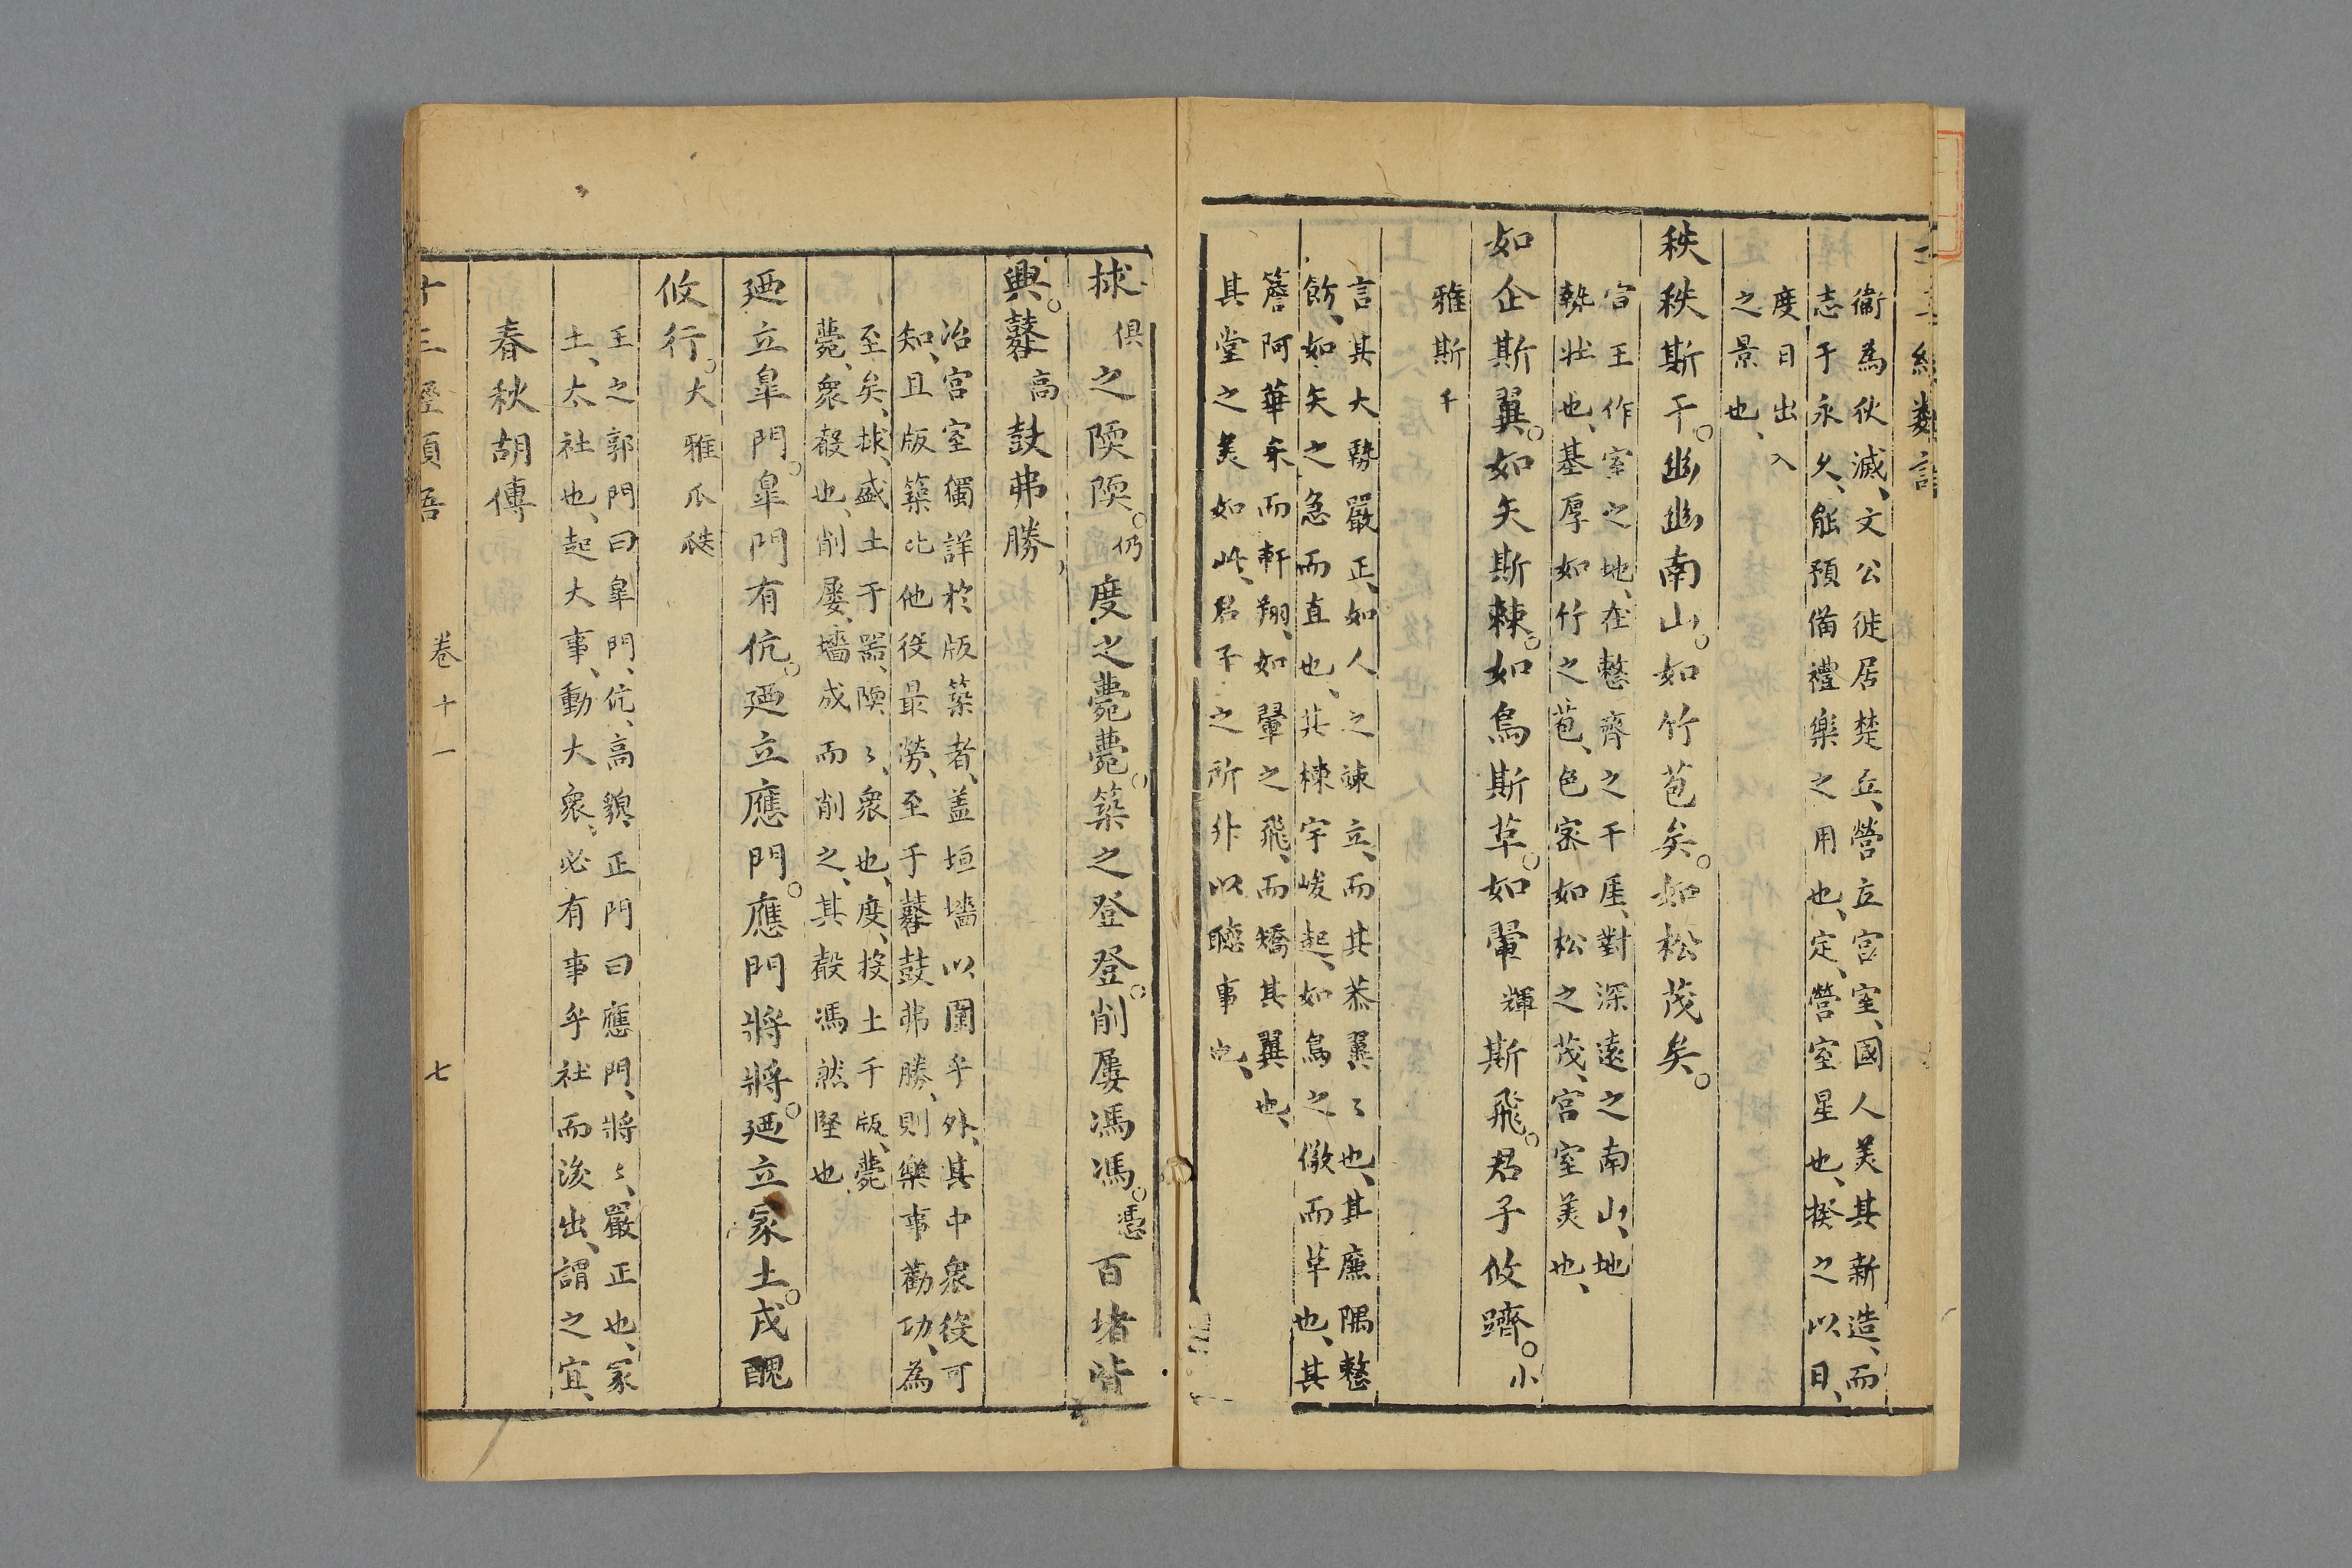 衞為狄滅、文公徙居楚丘、營立宮室、國人美其新造、而
志于永久、能預備禮樂之用也、定、營室星也、揆之以日、
度日出入
之景也、
秩秩斯干。幽幽南山。如竹苞矣。如松茂矣。
宣王作室之地、在整齊之干厓、對深遠之南山、地
埶壯也、基厚如竹之苞、色密如松之茂、宮室美也、
如企斯翼。如矢斯棘。如鳥斯革。如翬輝斯飛。君子攸躋。小
雅斯干
言其大勢嚴正、如人之竦立、而其恭翼〻也、其廉隅整
飭、如矢之急而直也、其棟宇峻起、如鳥之儆而革也、其
簷阿華采而軒翔、如翬之飛、而矯其翼也、
其堂之美如此、君子之所升以聽事也、
捄俱之陾陾。仍度之薨薨。築之登登。削屢馮馮。憑百堵皆
興。鼛高鼓弗勝
治宮室獨詳於版築者、盖垣墻以圍乎外、其中衆役可
知、且版築比他役最勞、至于鼛鼓弗勝、則樂事勸功、為
至矣、捄、盛土于噐、陾〻、衆也、度、投土于版、薨
薨、衆殸也、削屢、墻成而削之、其殸馮然堅也
廼立皐門。皐門有伉。廼立應門。應門將將。廼立冢土。戎醜
攸行。大雅瓜瓞
王之郭門曰皐門、伉、高貌、正門曰應門、將〻、嚴正也、冢
土、太社也、起大事、動大衆、必有事乎社而後出、謂之宜、
春秋胡傳
卷十一
七